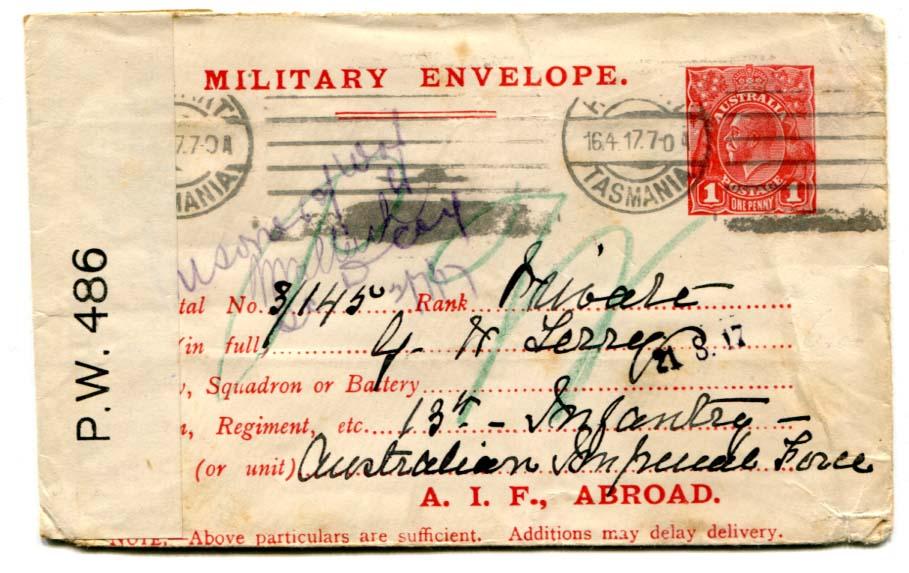 MILITARY ENVELOPE.
AUSTRALIA
POSTAGE
1 1
ONE PENNY
7.7-0A
MANIA
16.4.17.7-0A
TASMANIA
P.W. 486
tal No. 3/145 Rank Private
(in full) G H Terrey
21 8. 17
, Squadron or Battery
, Regiment, etc. 13th - Infantry -
(or unit) Australian Imperial Force
A. I. F., ABROAD.
NOTE.—Above particulars are sufficient. Additions may delay delivery.